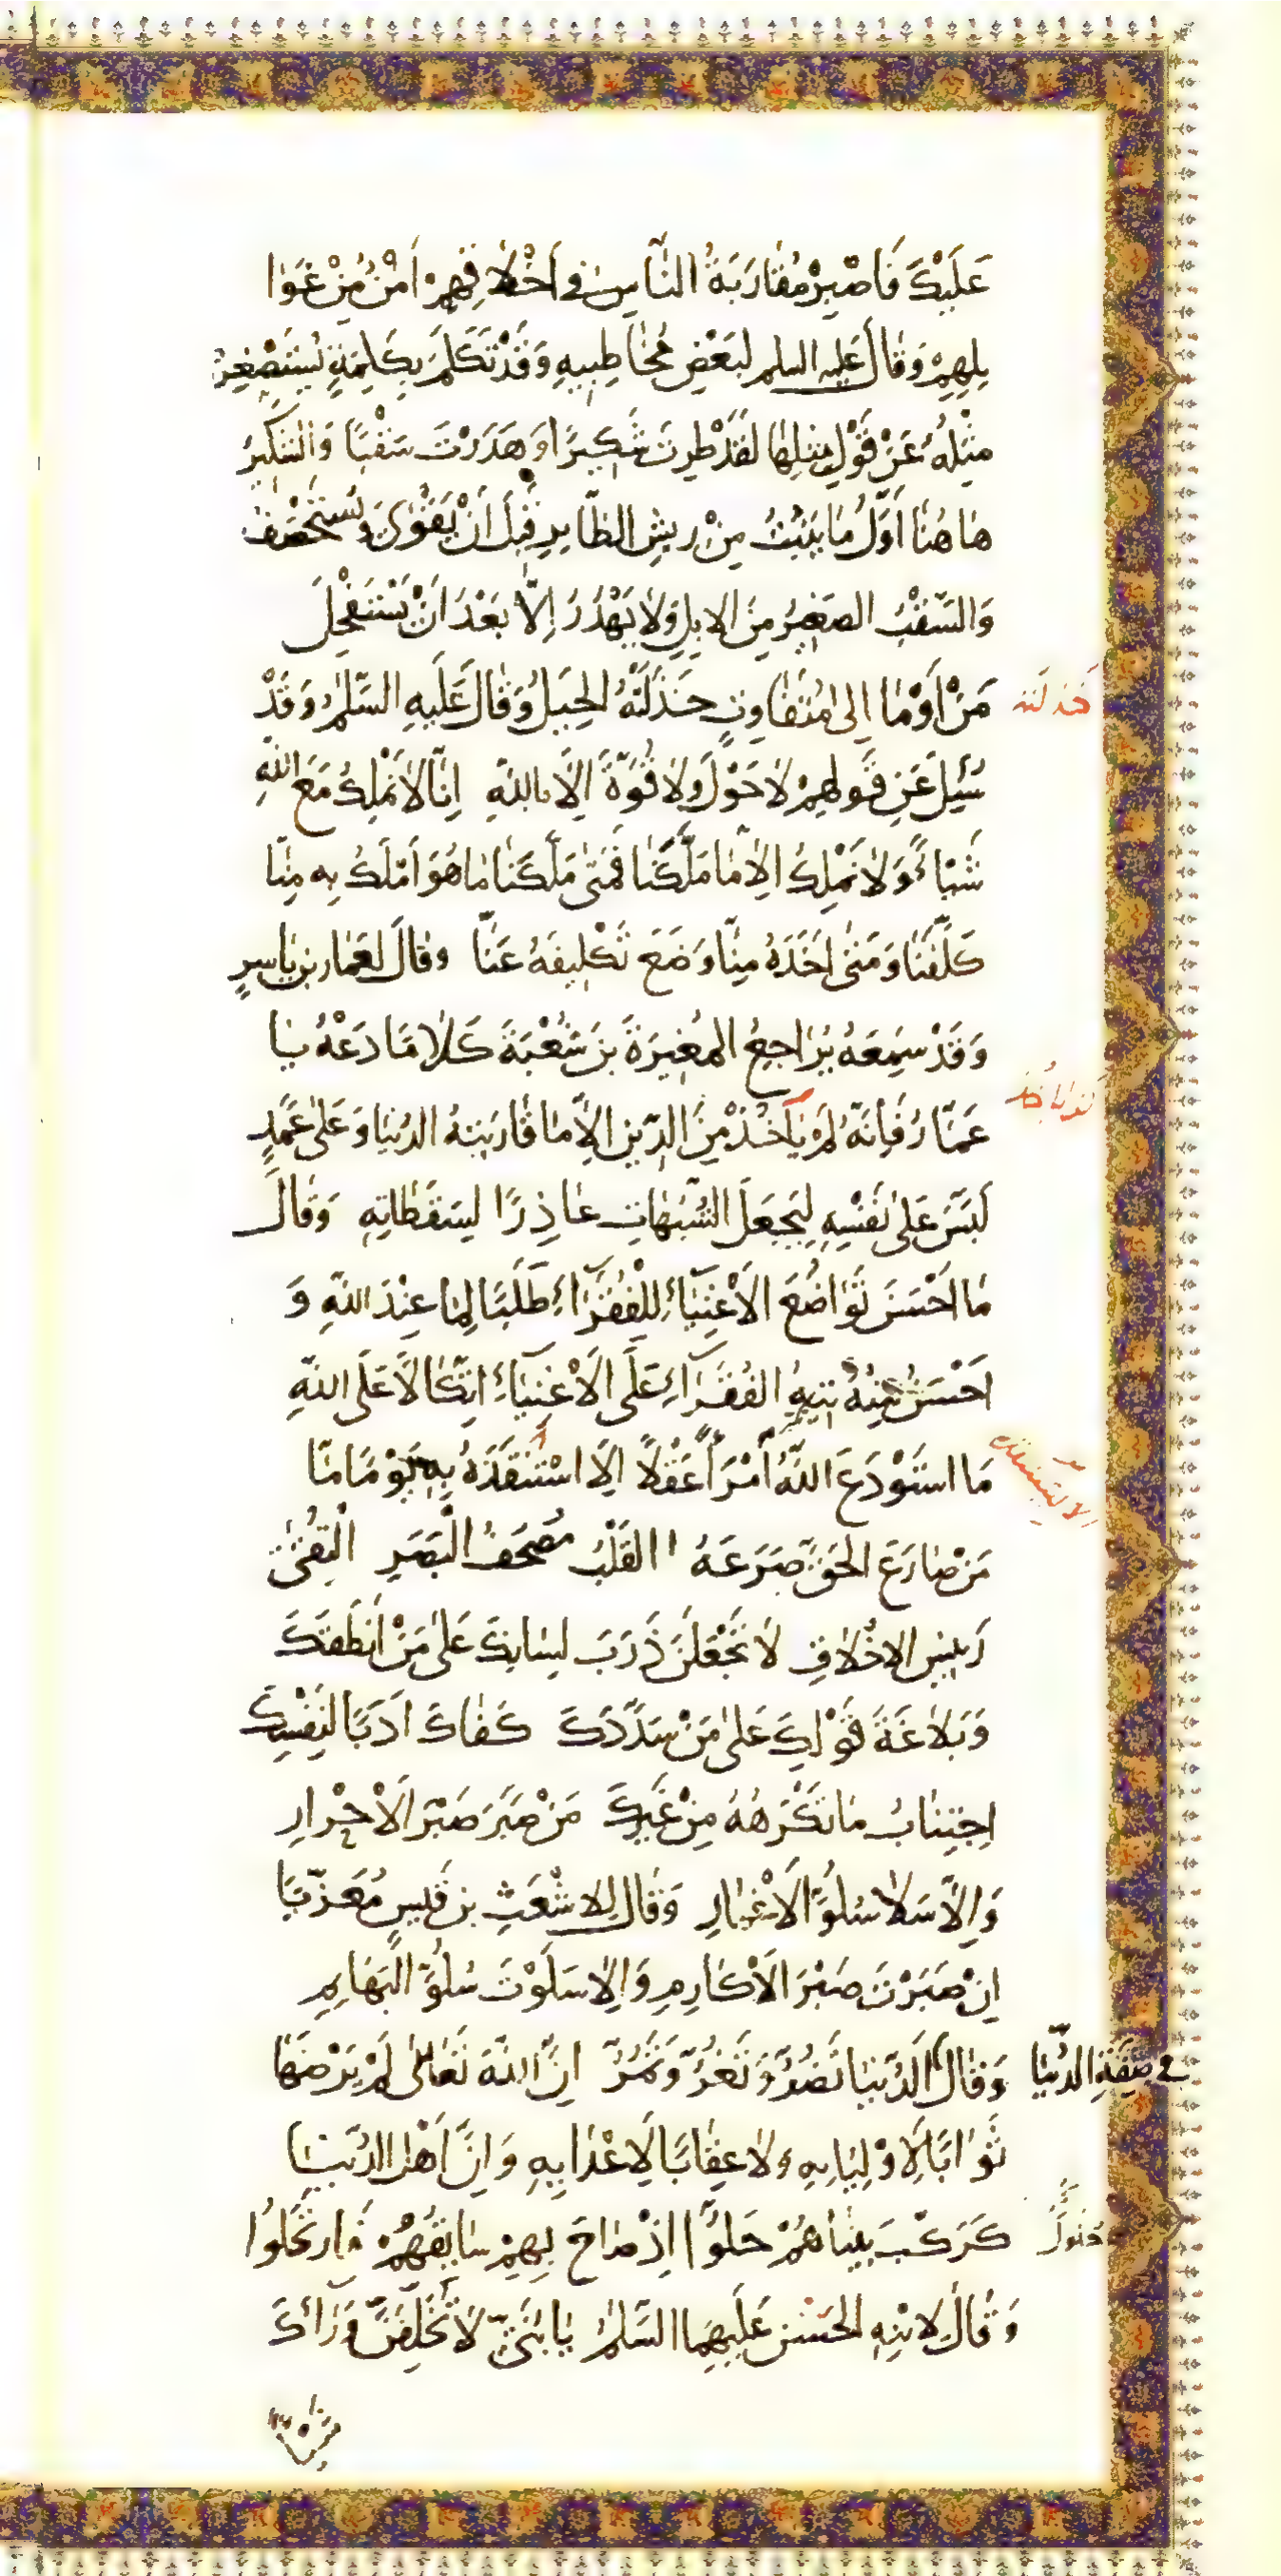 عَلَيْكَ فَاصْبِرْ مُقَارَبَةُ النَّاسِ فِي اَخْلَاقِهِمْ اَمْنٌ مِنْ غَوَا
يِلِهِمْ وَقَالَ عَلَيْهِ السلم لِبَعْضِ مُخَاطِبِيهِ وَقَدْ تَكَلَّمَ بِكَلِمَةٍ يُسْتَصْغَرُ
مِثْلُهُ عَنْ قَوْلِ مِثْلِهَا لَقَدْ طِرْتَ شَكِيرًا وَهَدَرْتَ سَقْبًا وَالشَّكِيرُ
هَاهُنَا اَوَّلُ مَا يَنْبُتُ مِنْ رِيشِ الطَّايِرِ قَبْلَ اَنْ يَقْوٰى وَيَسْتَحْصِفَ
وَالسَّقْبُ الصَّغِيرُ مِنَ الْاِبِلِ وَلَا يَهْدَرُ اِلَّا بَعْدَ اَنْ يَسْتَفْحِلَ
مَنْ اَوْمَا اِلٰى مُتَفَاوِتٍ خَذَلَتْهُ الْحِيَلُ وَقَالَ عَلَيْهِ السَّلٰمُ وَقَدْ
خذلته
سُئِلَ عَنْ قَوْلِهِمْ لَا حَوْلَ وَلَا قُوَّةَ اِلَّا بِاللّٰهِ اِنَّا لَا نَمْلِكُ مَعَ اللّٰهِ
شَيْاءً وَلَا نَمْلِكُ اِلَّا مَا مَلَّكَنَا فَمَتٰى مَلَّكَنَا مَا هُوَ اَمْلَكُ بِهِ مِنَّا
كَلَّفَنَا وَمَتٰى اَخَذَهُ مِنَّا وَضَعَ تَكْلِيفَهُ عَنَّا وَقَالَ لِعَمَّارِ بْنِ يَاسِرٍ
وَقَدْ سَمِعَهُ يُرَاجِعُ الْمُغِيرَةَ بْنَ شُعْبَةَ كَلَامًا دَعْهُ يَا
عَمَّارُ فَاِنَّهُ لَمْ يَأْخُذْ مِنَ الدِّينِ اِلَّا مَا قَارَبَتْهُ الدُّنْيَا وَعَلٰى عَمْدٍ
لَبَّسَ عَلٰى نَفْسِهِ لِيَجْعَلَ الشُّبُهَاتِ عَاذِرًا لِسَقَطَاتِهِ وَقَالَ
مَا اَحْسَنَ تَوَاضُعَ الْاَغْنِيَاءِ لِلْفُقَرَاءِ طَلَبًا لِمَا عِنْدَ اللّٰهِ وَ
اَحْسَنُ مِنْهُ تِيهُ الْفُقَرَاءِ عَلَى الْاَغْنِيَاءِ اِتِّكَالًا عَلَى اللّٰهِ
مَا اسْتَوْدَعَ اللّٰهُ اَمْرَأً عَقْلًا اِلَّا اسْتَنْقَذَهُ بِهِ يَوْمًا مَّا
مَنْ صَارَعَ الْحَقَّ صَرَعَهُ الْقَلْبُ مُصْحَفُ الْبَصَرِ اَلْتُّقٰى
رَئِيسُ الْاَخْلَاقِ لَا تَجْعَلَنَّ ذَرَبَ لِسَانِكَ عَلٰى مَنْ اَنْطَقَكَ
وَبَلَاغَةَ قَوْلِكَ عَلٰى مَنْ سَدَّدَكَ كَفَاكَ اَدَبًا لِنَفْسِكَ
اجْتِنَابُ مَا تَكْرَهُهُ مِنْ غَيْرِكَ مَنْ صَبَرَ صَبْرَ الْاَحْرَارِ
وَاِلَّا سَلَا سُلُوَّ الْاَغْمَارِ وَقَالَ لِلْاَشْعَثِ بْنِ قَيْسٍ مُعَزِّيًا
اِنْ صَبَرْتَ صَبْرَ الْاَكَارِمِ وَاِلَّا سَلَوْتَ سُلُوَّ الْبَهَايِمِ
فِي صِفَةِ الدُّنْيَا
وَقَالَ الدُّنْيَا تَضُرُّ وَتَغُرُّ وَتَمُرُّ اِنَّ اللّٰهَ تَعَالٰى لَمْ يَرْضَهَا
ثَوَابًا لِاَوْلِيَايِهِ وَلَا عِقَابًا لِاَعْدَايِهِ وَاِنَّ اَهْلَ الدُّنْيَا
كَرَكْبٍ بَيْنَاهُمْ حَلُّوا اِذْ صَاحَ بِهِمْ سَايِقُهُمْ فَارْتَحَلُوا
وَقَالَ لِابْنِهِ الْحَسَنِ عَلَيْهِمَا السَّلٰمُ يَا بُنَيَّ لَا تُخَلِّفَنَّ وَرَاءَكَ